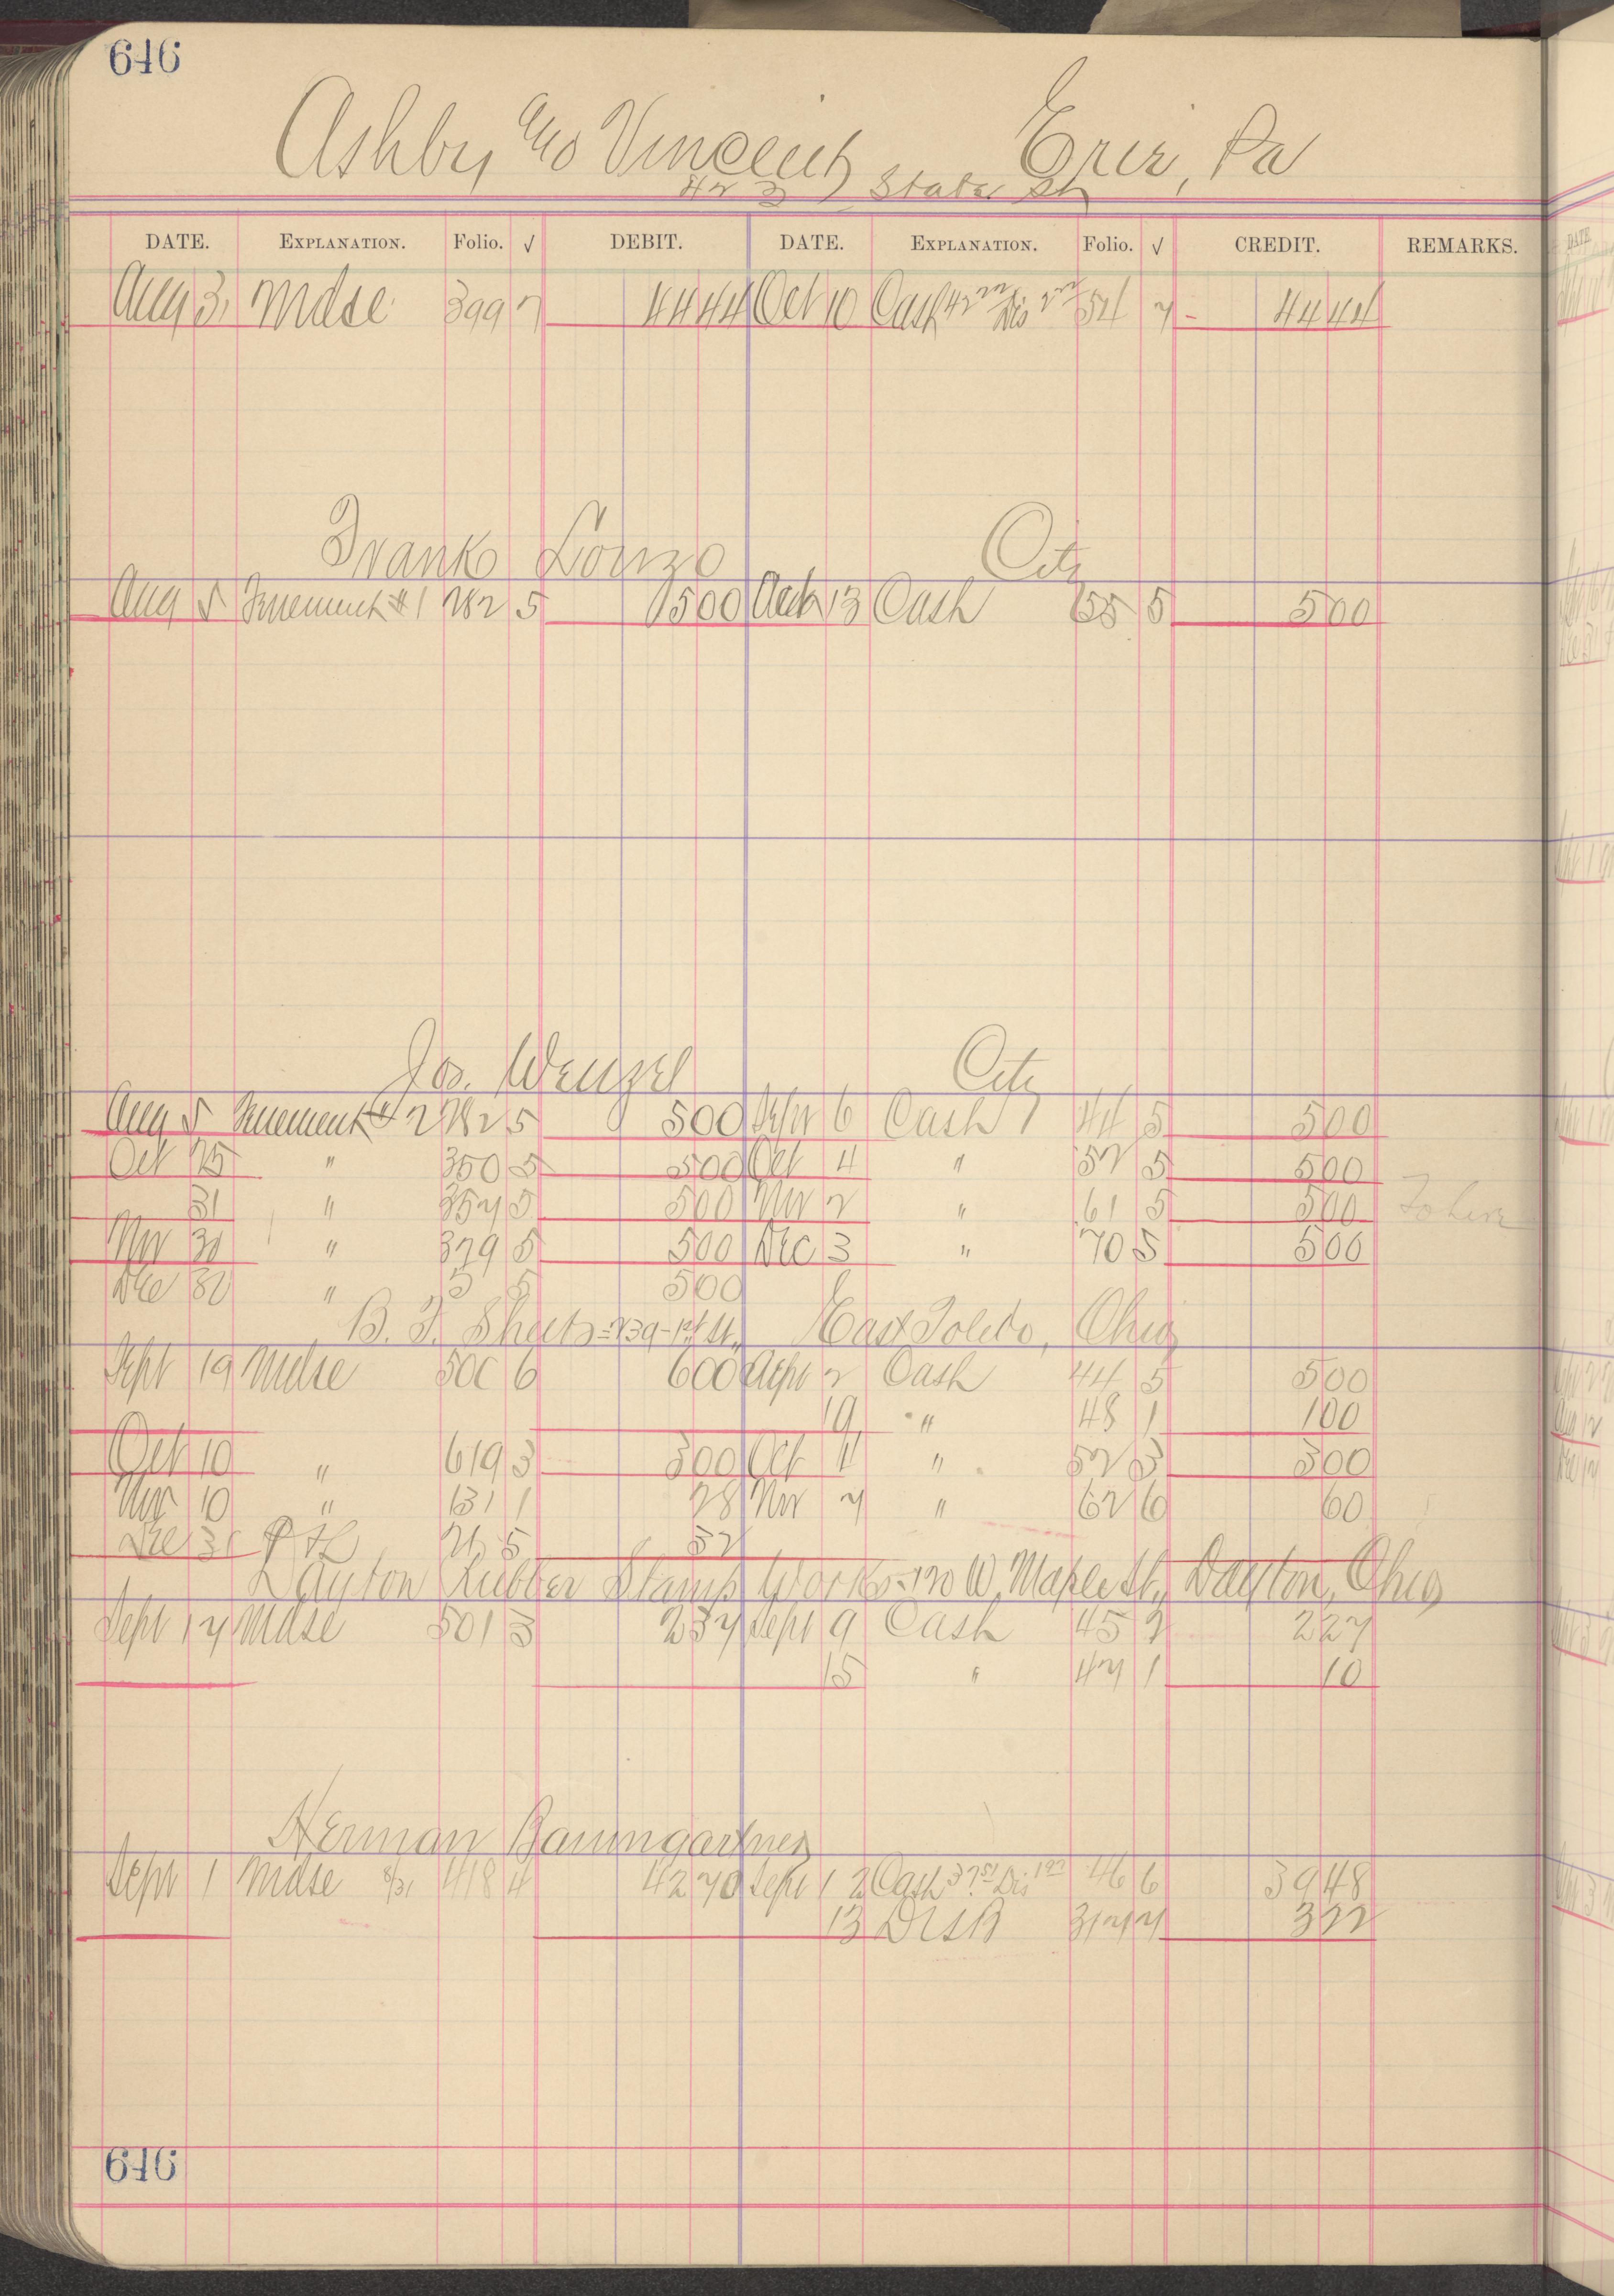 646
Ashby and Vincent, Erie, Pa
423 State St
DATE. EXPLANATION. Folio. √ DEBIT. DATE. EXPLANATION. Folio. √ CREDIT. REMARKS.
Aug 31 Mdse 399 7 4444 Oct 10 Cash Dis 54 7 4444
Frank City
Aug 5 Tenement #1 282 5 500 13 Cash 55 5 500
Jos. Wenzel City
Aug 5 Tenement # 2 282 5 500 Sept 6 Cash 44 5 500
Oct 25 " 350 5 500 Oct 4 " 52 5 500
31 " 354 5 500 Nov 2 " 61 5 500
Nov 30 " 379 5 500 Dec 3 " 70 5 500
Dec " 5 5 500
B. F. Sheets 1st St., East Toledo, Ohio
Sept 19 Mdse 500 6 600 Sept 2 Cash 44 5 500
19 " 48 1 100
Oct 10 " 619 3 300 Oct 4 " 52 3 300
Nov 10 " 631 1 28 Nov 7 " 62 6 60
Dec 31 P & L 21 5 32
Dayton Rubber Stamp Works - 120 W. Maple St., Dayton, Ohio
Sept 17 Mdse 501 3 237 Sept 9 Cash 45 2 227
15 " 47 1 10
Herman Baumgartner
Sept 1 Mdse 8/31 418 4 4270 Sept 12 Cash 37 51 Dis 1 97 46 6 3948
13 317 7 322
646